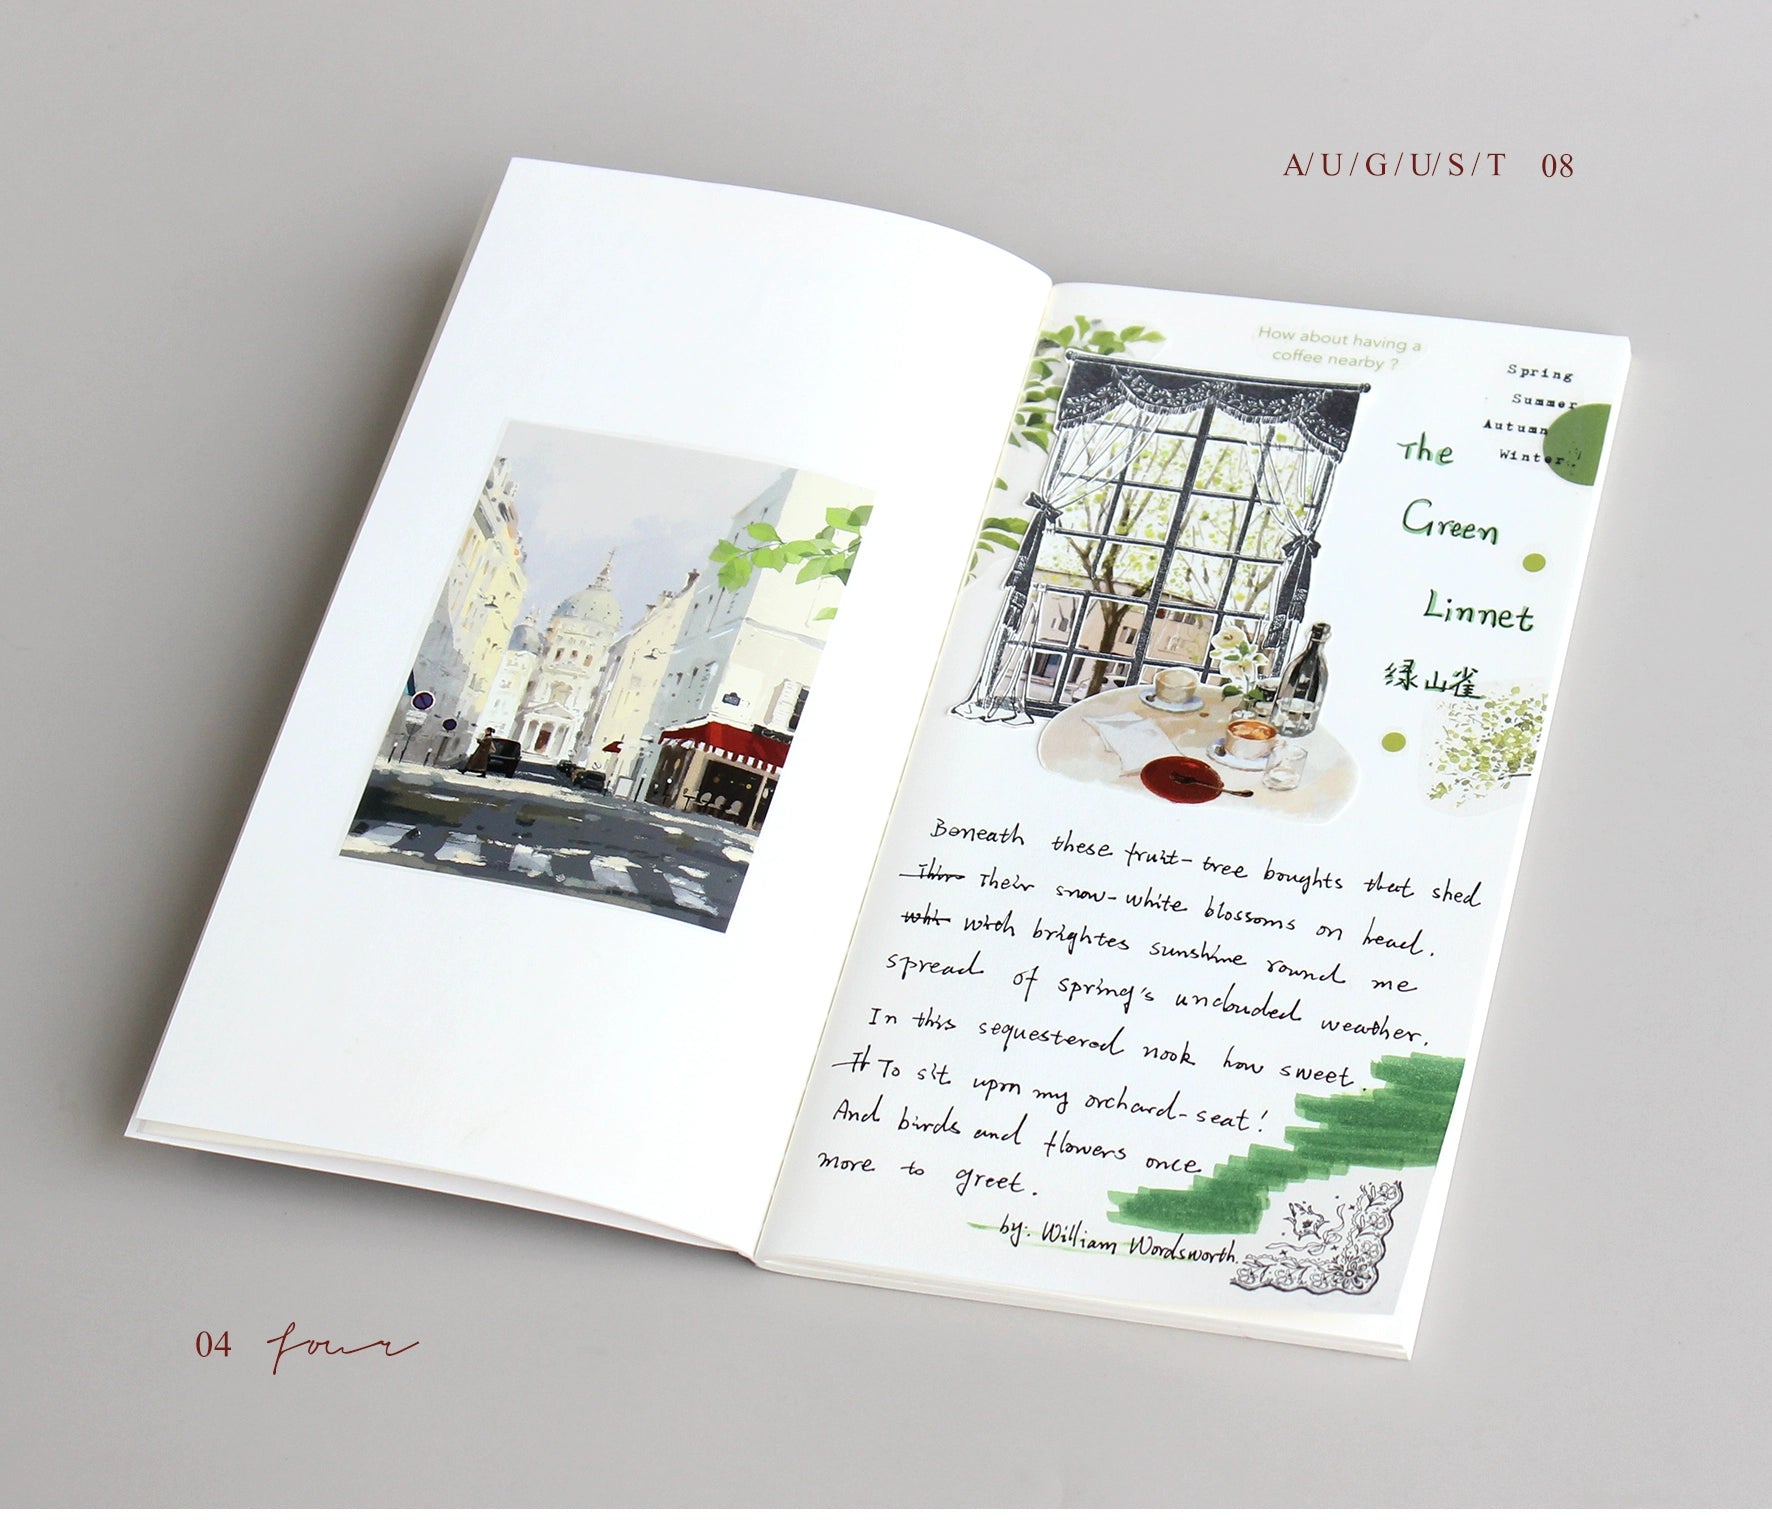 A/U/G/U/S/T 08
How about having a
coffee nearby ?
Spring
Summer
Autumn
Winter
The
Green
Linnet
绿山雀
Beneath these fruit-tree boughts that shed
Their Their snow-white blossoms on head.
whi with brightes sunshine round me
spread of spring's unclouded weather.
In this sequestered nook how sweet.
It To sit upon my orchard-seat!
And birds and flowers once
more to greet.
by: William Wordsworth.
04 four